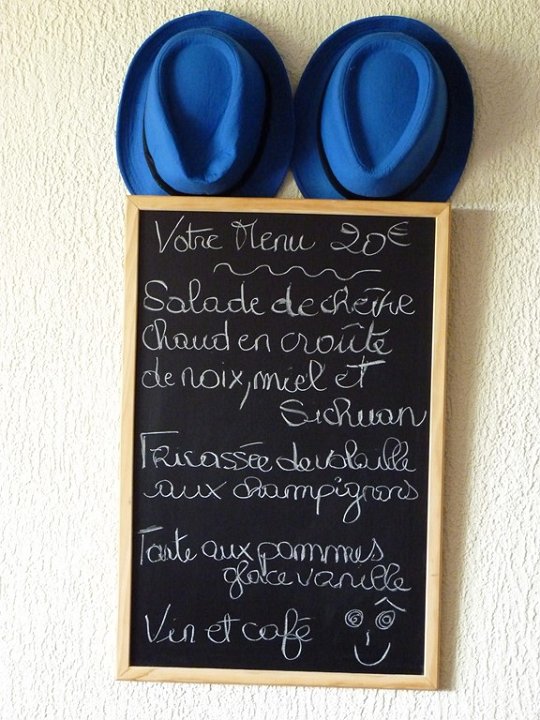 Votre Menu 20€
Salade de chèvre
chaud en croûte
de noix, miel et
Sichuan
Fricassée de volaille
aux champignons
Tarte aux pommes
glace vanille
Vin et café